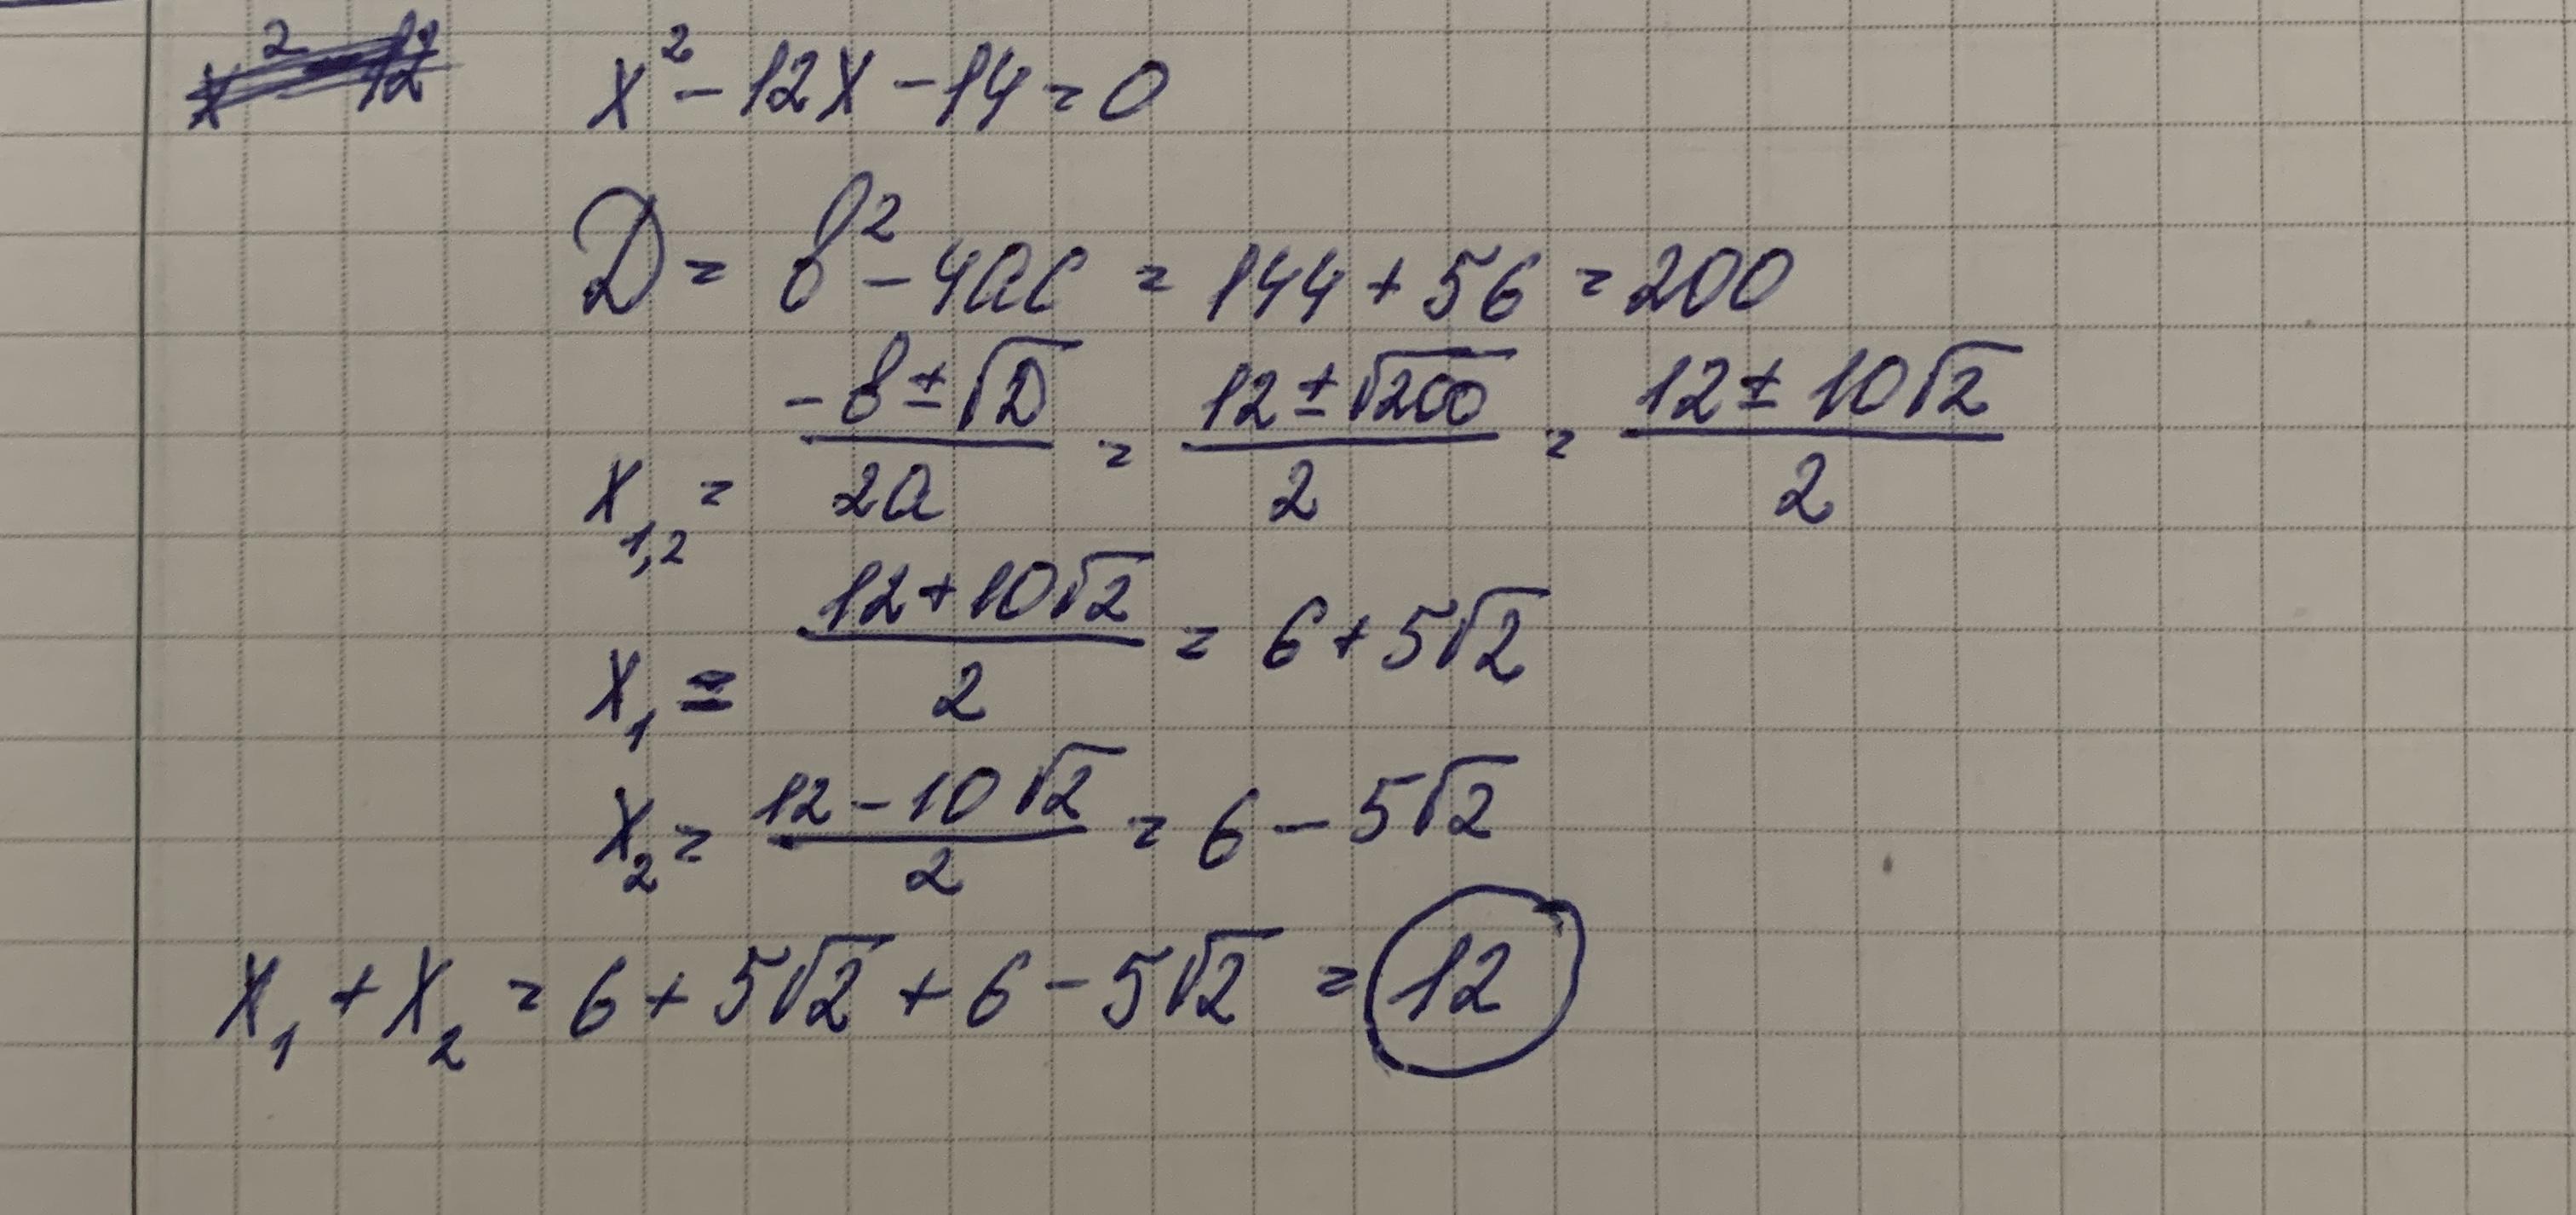 x² - 12x - 14 = 0
D = b² - 4ac = 144 + 56 = 200
x₁,₂ = (-b ± √D)/2a = (12 ± √200)/2 = (12 ± 10√2)/2
x₁ = (12 + 10√2)/2 = 6 + 5√2
x₂ = (12 - 10√2)/2 = 6 - 5√2
x₁ + x₂ = 6 + 5√2 + 6 - 5√2 = 12